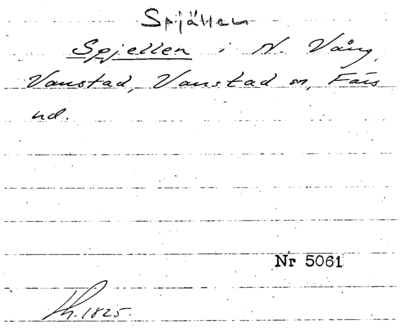 Spjällen
Spjellen i N. Vång,
Vanstad, Vanstad sn, Färs
hd.
Nr 5061
Lh. 1825.